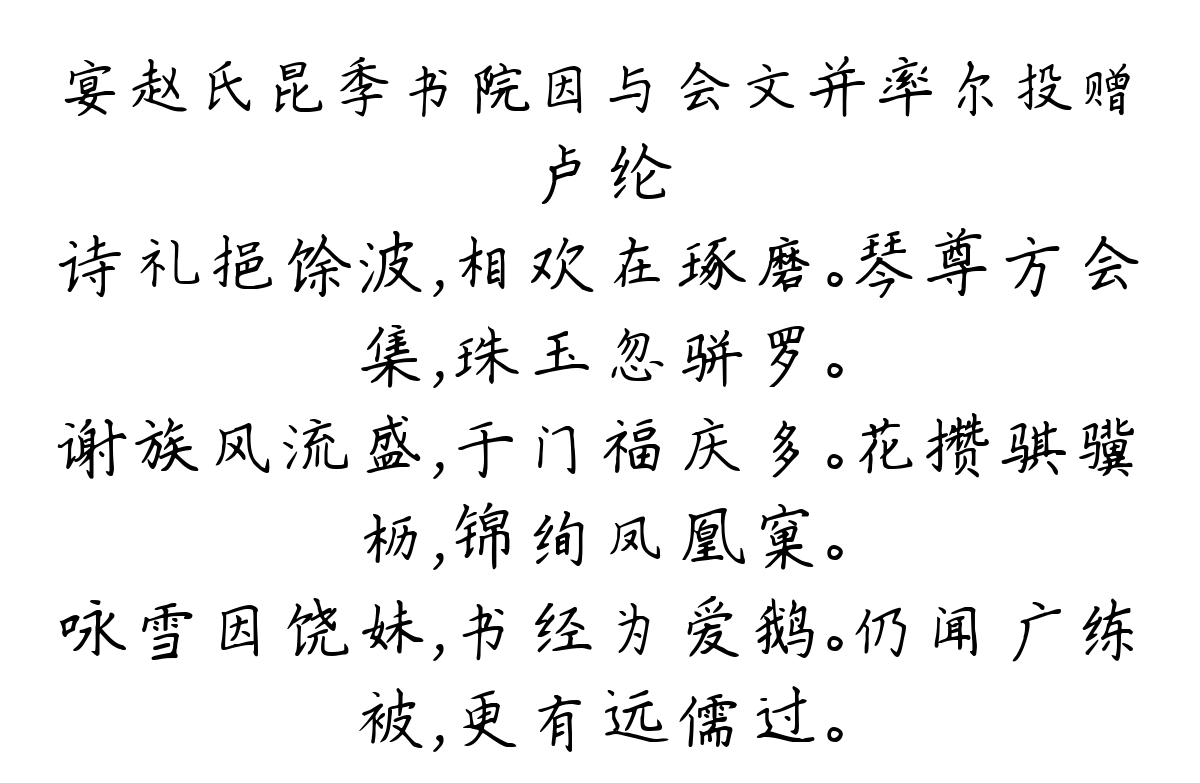 宴赵氏昆季书院因与会文并率尔投赠
卢纶
诗礼挹馀波,相欢在琢磨。琴尊方会
集,珠玉忽骈罗。
谢族风流盛,于门福庆多。花攒骐骥
枥,锦绚凤凰窠。
咏雪因饶妹,书经为爱鹅。仍闻广练
被,更有远儒过。